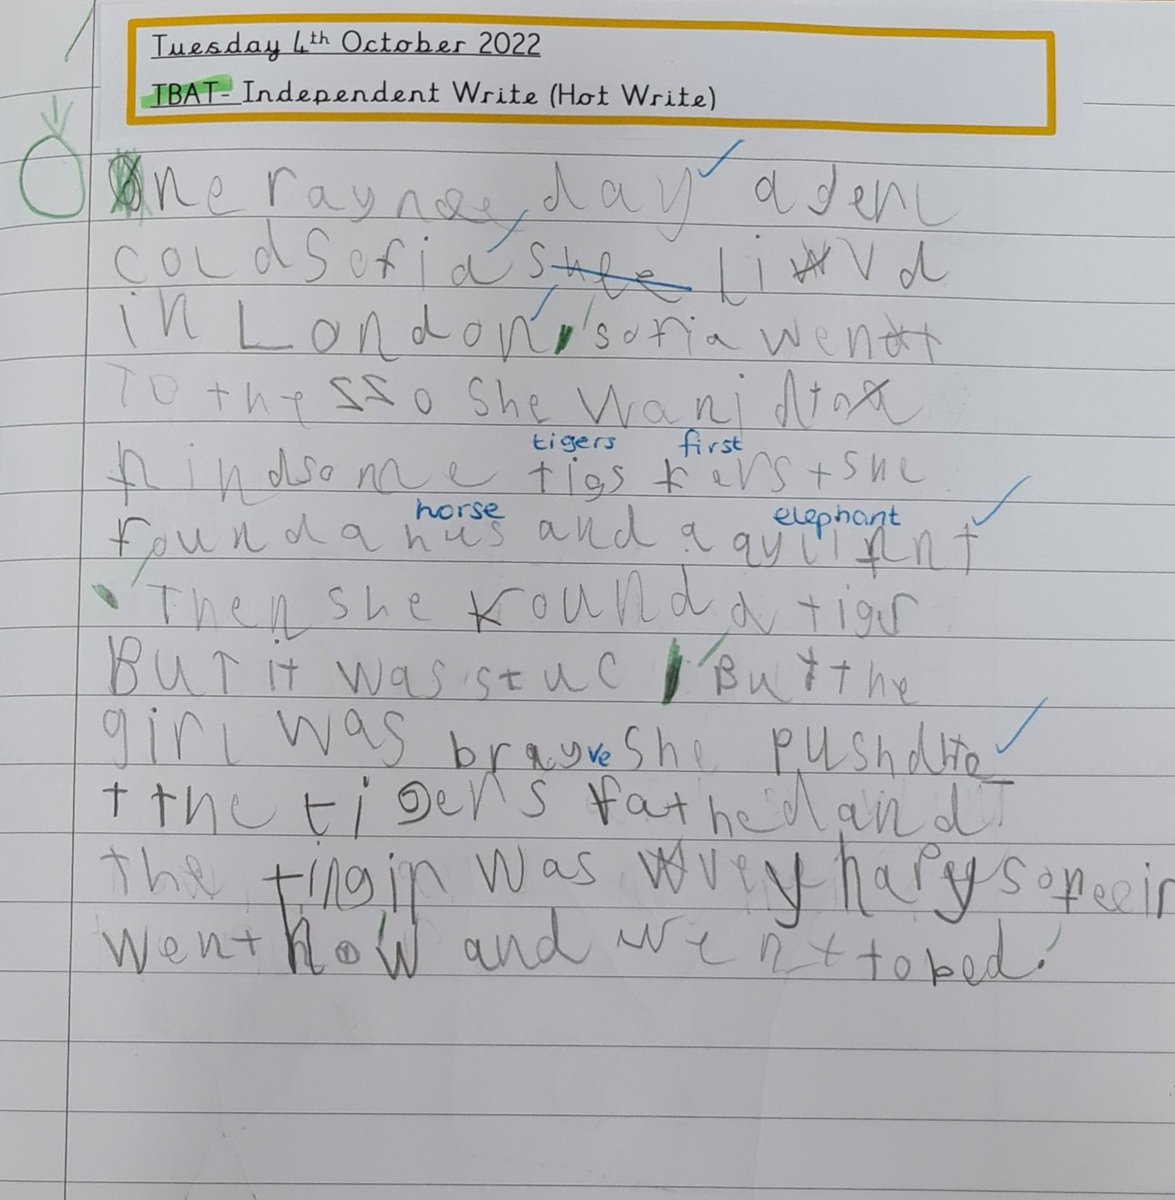 Tuesday 4th October 2022
TBAT- Independent Write (Hot Write)
One raynee day a genl
cold Sofia she livd
in London. sofia went
To the zzo She wanid to
find some tigs fers t she
tigers first
found a hus and a aylifnt
horse elephant
Then she found a tigr
But it was stuc But the
girl was brayve She pushd
t the tigers fat hed and
the was vrey hapy so
went how and went to bed.